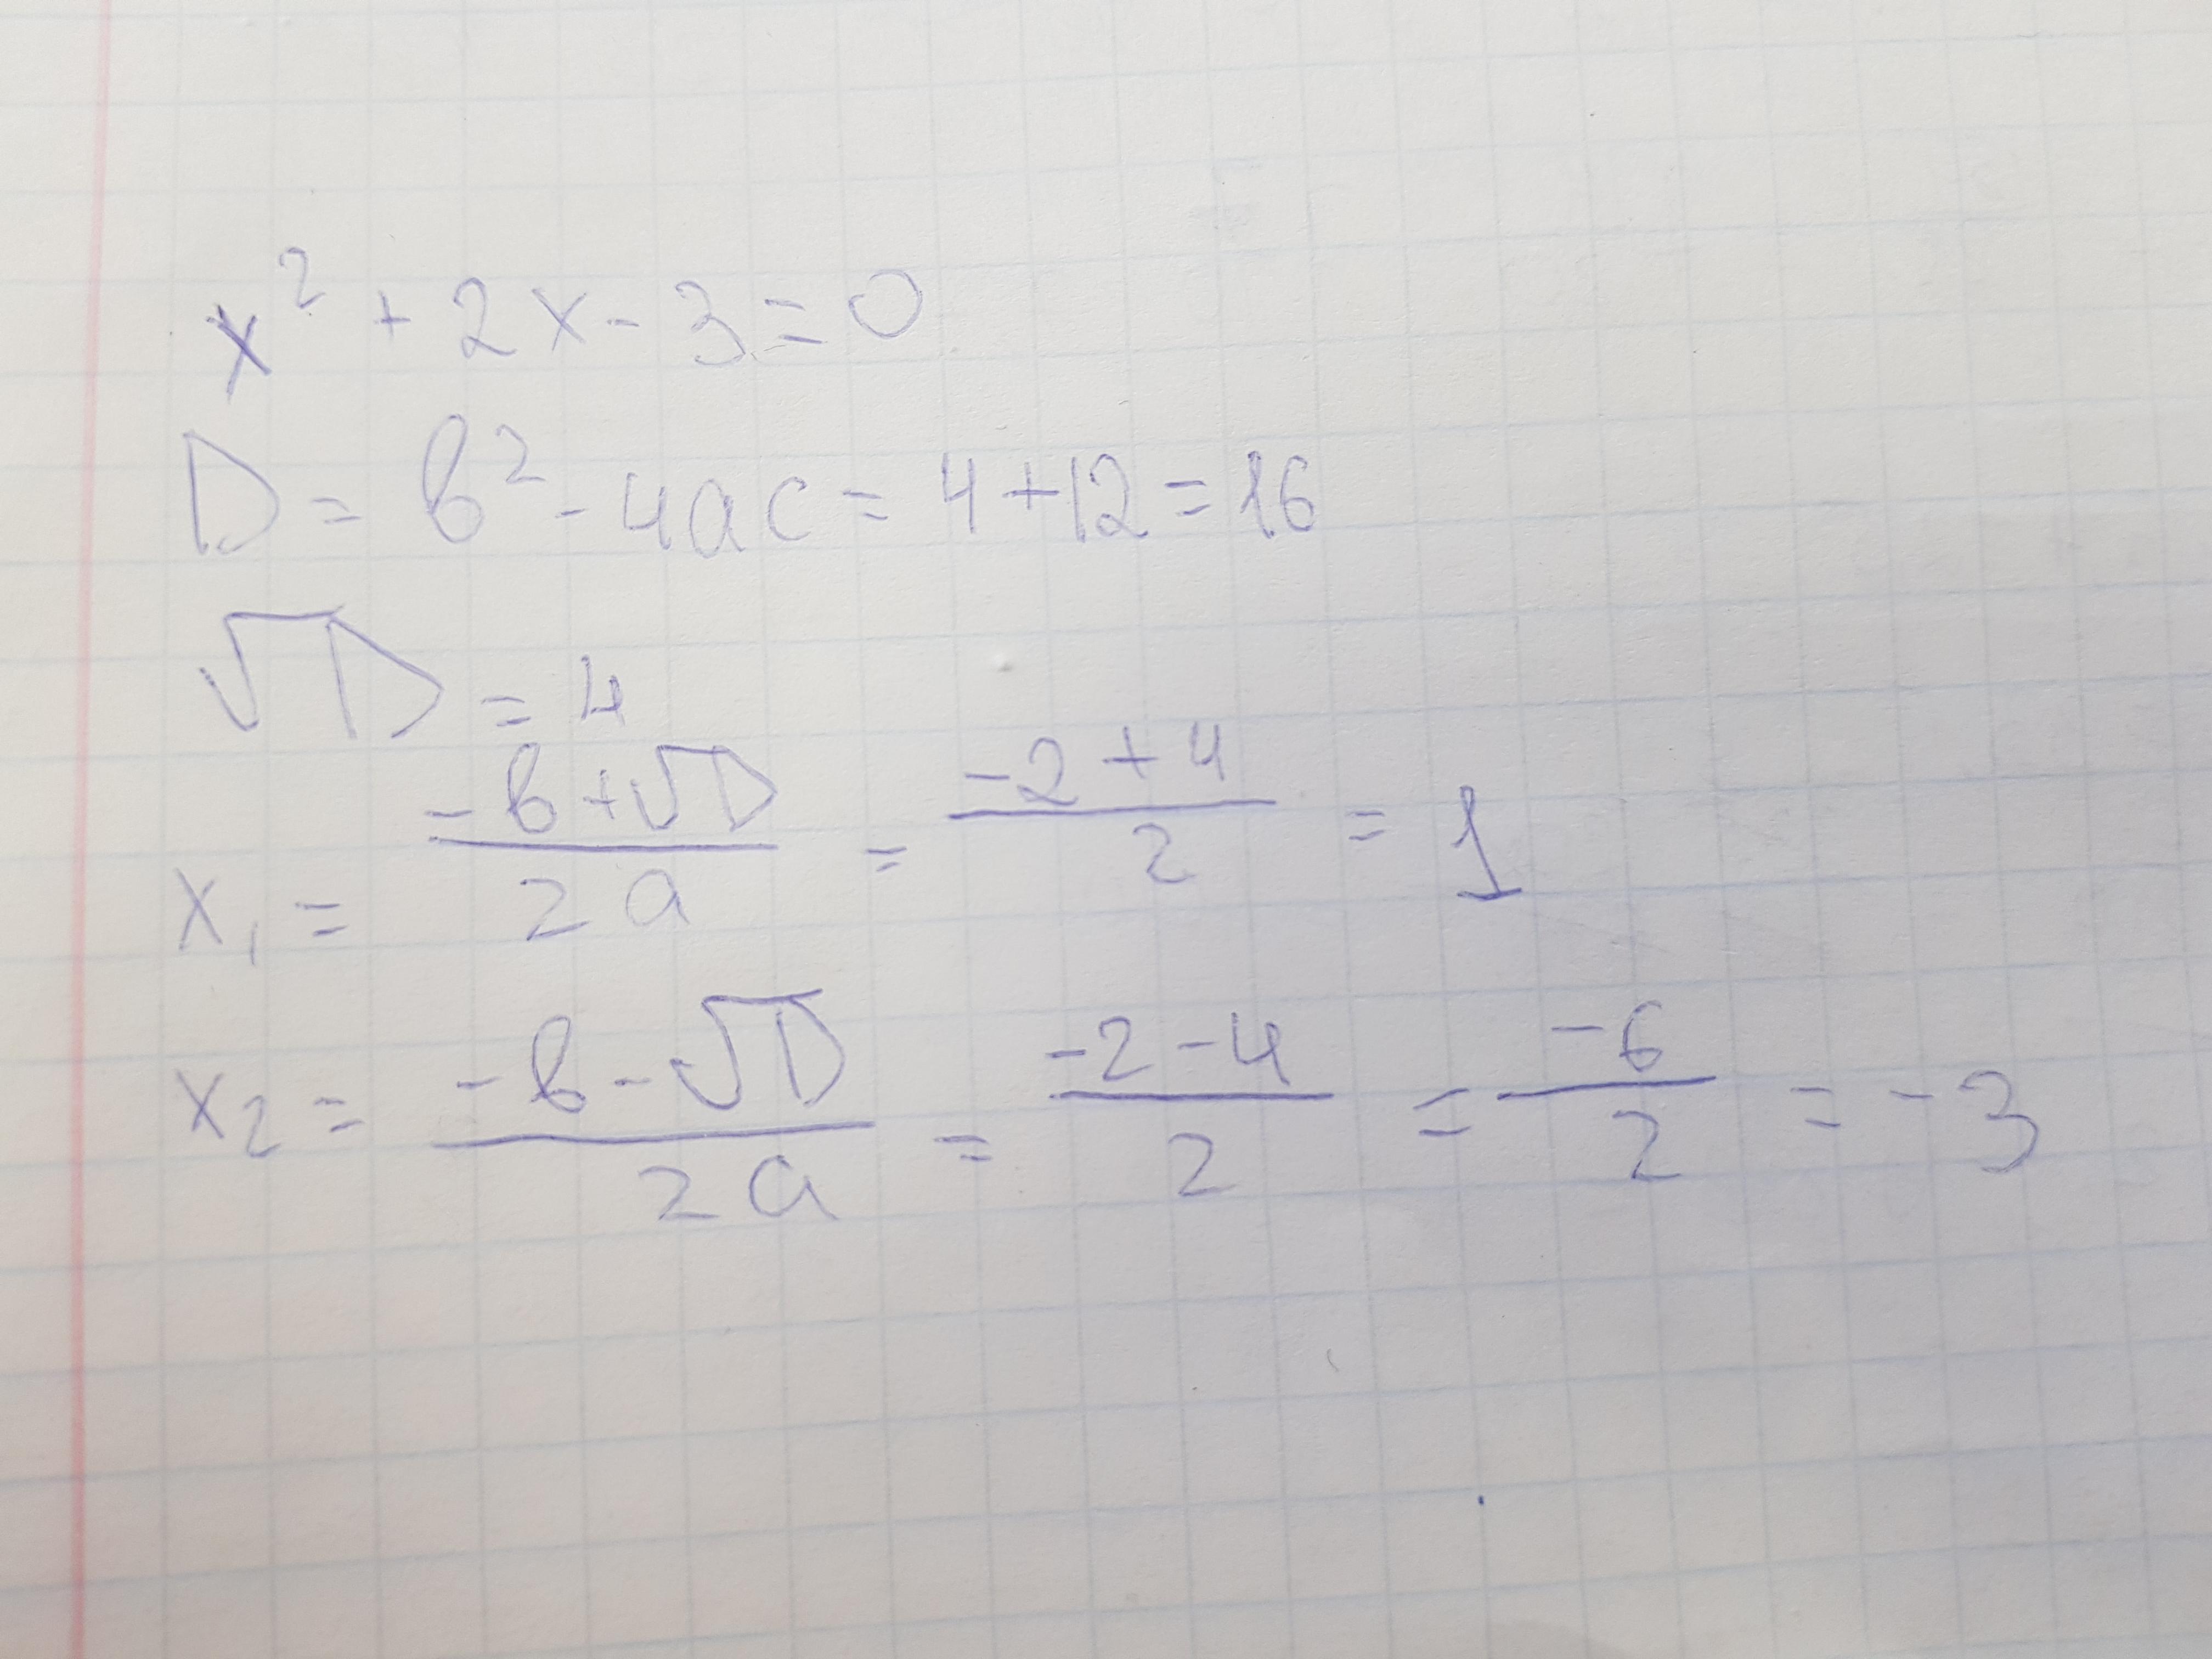 x² + 2x - 3 = 0
D = b² - 4ac = 4 + 12 = 16
√D = 4
x₁ = (-b + √D) / 2a = (-2 + 4) / 2 = 1
x₂ = (-b - √D) / 2a = (-2 - 4) / 2 = -6 / 2 = -3